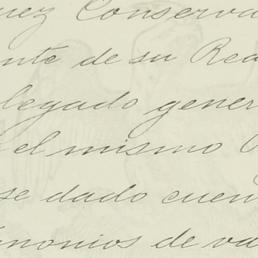 uez Conserva
nte de su Rea
legado gener
el mismo
se dado cuen
monios de va